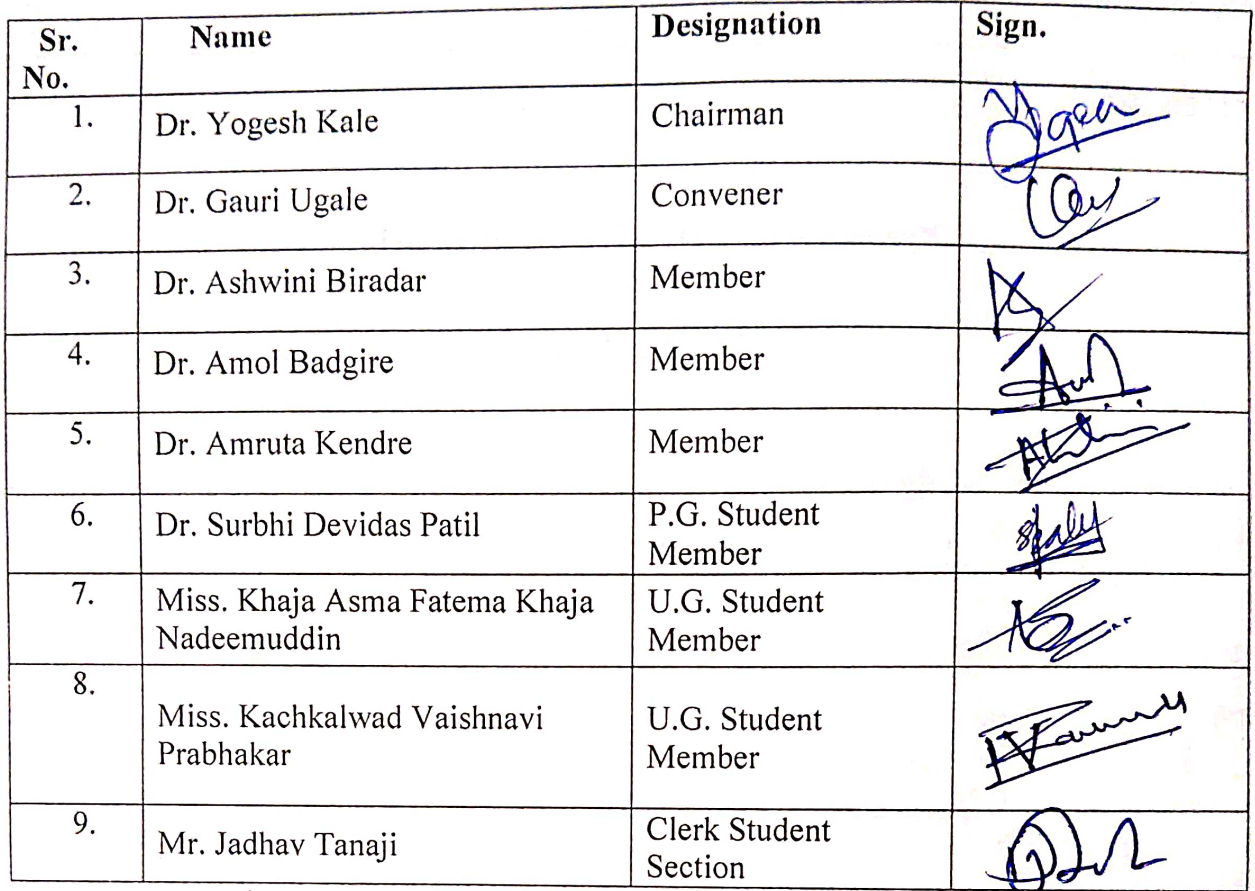 Sr. Name Designation Sign.
No.
1. Dr. Yogesh Kale Chairman
2. Dr. Gauri Ugale Convener
3. Dr. Ashwini Biradar Member
4. Dr. Amol Badgire Member
5. Dr. Amruta Kendre Member
6. Dr. Surbhi Devidas Patil P.G. Student
Member
7. Miss. Khaja Asma Fatema Khaja U.G. Student
Nadeemuddin Member
8.
Miss. Kachkalwad Vaishnavi U.G. Student
Prabhakar Member
9. Mr. Jadhav Tanaji Clerk Student
Section